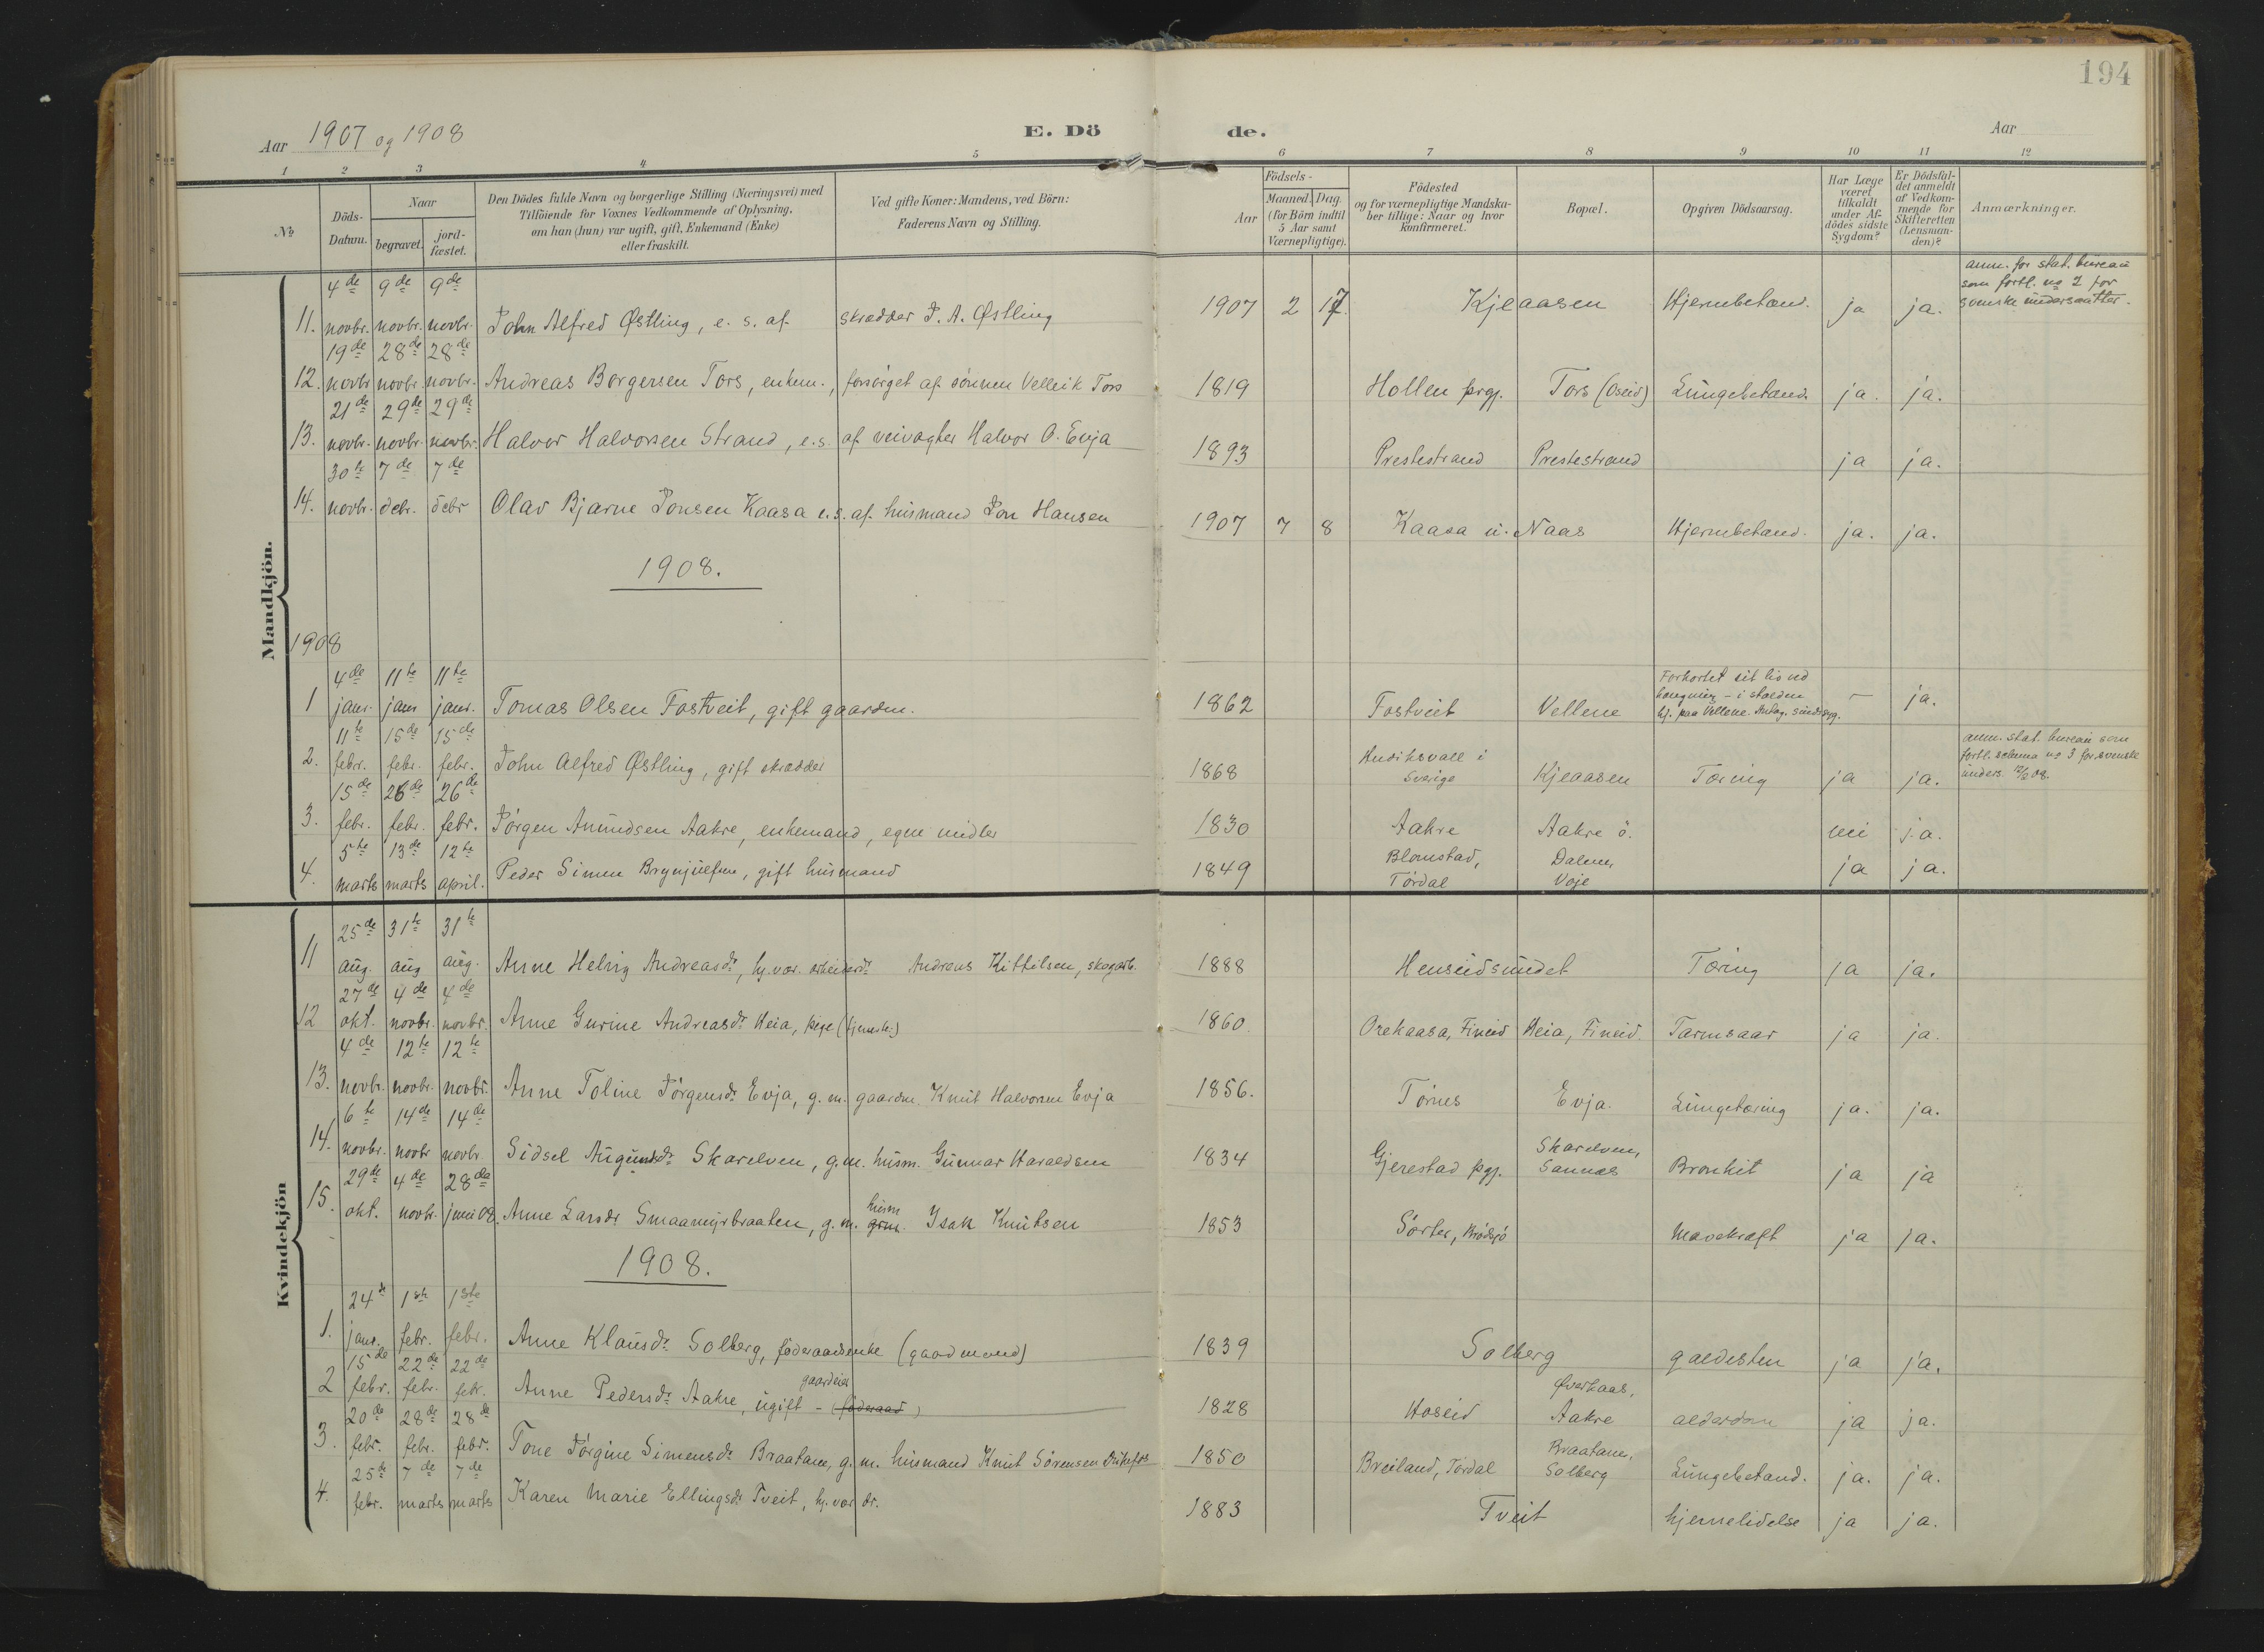 194
Aar 1907 og 1908 E. Dö de. Aar
1 2 3 4 5 6 7 8 9 10 11 12
№ Döds-Datum. Naar begravet. jord-fæstet. Den Dödes fulde Navn og borgerlige Stilling (Næringsvei) med Tilföiende for Voxnes Vedkommende af Oplysning, om han (hun) var ugift, gift, Enkemand (Enke) eller fraskilt. Ved gifte Koner: Mandens, ved Börn: Faderens Navn og Stilling. Födsels- Aar Maaned. Dag. (for Börn indtil 5 Aar samt Værnepligtige). Födested og for værnepligtige Mandskaber tillige: Naar og hvor konfirmeret. Bopæl. Opgiven Dödsaarsag. Har Læge været tilkaldt under Afdödes sidste Sygdom? Er Dödsfaldet anmeldt af Vedkommende for Skifteretten (Lensmanden)? Anmærkninger.
Mandkjön.
11. 4de novbr. 9de novbr. 9de novbr. John Alfred Østling, e. s. af skrædder J. A. Østling 1907 2 17. Kjeaasen Hjernebetænd. ja ja. anm. for stat. bureau som fortl. no 2 for svenske undersaatter.
12. 19de novbr 28de novbr. 28de novbr. Andreas Borgersen Tors, enkem., forsörget af sönnen Velleik Tors 1819 Hollen prgj. Tors (Oseid) Lungebetænd. ja. ja.
13. 21de novbr. 29de novbr. 29de novbr. Halvor Halvorsen Strand, e. s. af veivogter Halvor O. Evja 1893 Prestestrand Prestestrand ja ja.
14. 30te novbr. 7de debr. 7de debr Olav Bjarne Jonsen Kaasa e. s. af husmand Jon Hansen 1907 7 8 Kaasa u. Naas Hjernebetænd. ja. ja.
1908.
1908
1 4de janr. 11te janr 11te janr. Tomas Olsen Fostveit, gift gaardm. 1862 Fostveit Vellene Forkortet sit liv ved hængning - i stalden hj. paa Vellene. Antag. sindssyg. - ja.
2. 11te febr. 15de febr. 15de febr. John Alfred Østling, gift skrædder 1868 Hudiksvall i Sverige Kjeaasen Tæring ja ja. anm. stat. bureau som fortl. schema no 3 for svenske unders. 08.
3. 15de febr. 26de febr. 26de febr. Jörgen Amundsen Aakre, enkemand, egne midler 1830 Aakre Aakre ö. nei ja.
4. 5te marts 13de marts 12te april. Peder Simen Brynjulfsen, gift husmand 1849 Blomstad, Tördal Dalene, Voje ja ja.
Kvindekjön
11 25de aug. 31te aug 31te aug. Anne Helvig Andreasdr, hj. vær. arbeiderdr Andreas Kittilsen, skogarb. 1888 Henseidsundet Tæring ja ja.
12 27de okt. 4de novbr. 4de novbr. Anne Gurine Andreasdr Heia, pige (tjeneste.) 1860. Orekaasa, Fineid Heia, Fineid. Tarmsaar ja ja.
13. 4de novbr. 12te novbr. 12te novbr. Anne Toline Jörgensdr Evja, g. m. gaardm. Knut Halvorsen Evja 1856. Törnes Evja. Lungetæring ja. ja.
14. 6te novbr. 14de novbr 14de novbr. Sidsel Augundsdr Skarelven, g. m. husm. Gunnar Haraldsen 1834 Gjerestad pgj. Skarelven, Sannæs Bronkit ja ja
15. 29de okt. 4de novbr. 28de juni 08. Anne Larsdr Smaamyrbraaten, g. m. husm grm. Isak Knutsen 1853 Sörter, Brödsjö Mavekræft ja ja.
1908.
1. 24de janr. 1ste febr. 1ste febr. Anne Klausdr Solberg, föderaadsenke (gaardmand) 1839 Solberg galdesten ja ja.
2 15de febr. 22de febr. 22de febr. Anne Pedersdr Aakre, ugift - gaardeier (föderaad) 1828 Hoseid Øverkaas, Aakre alderdom ja ja.
3. 20de febr. 28de febr. 28de febr. Tone Jörgine Simensdr Braatane, g. m. husmand Knut Sörensen 1850 Breiland, Tördal Braatane, Solberg Lungebetænd. ja. ja.
4. 25de febr. 7de marts 7de marts Karen Marie Ellingsdr Tveit, hj. vær dr. 1883 Tveit hjernelidelse ja ja.